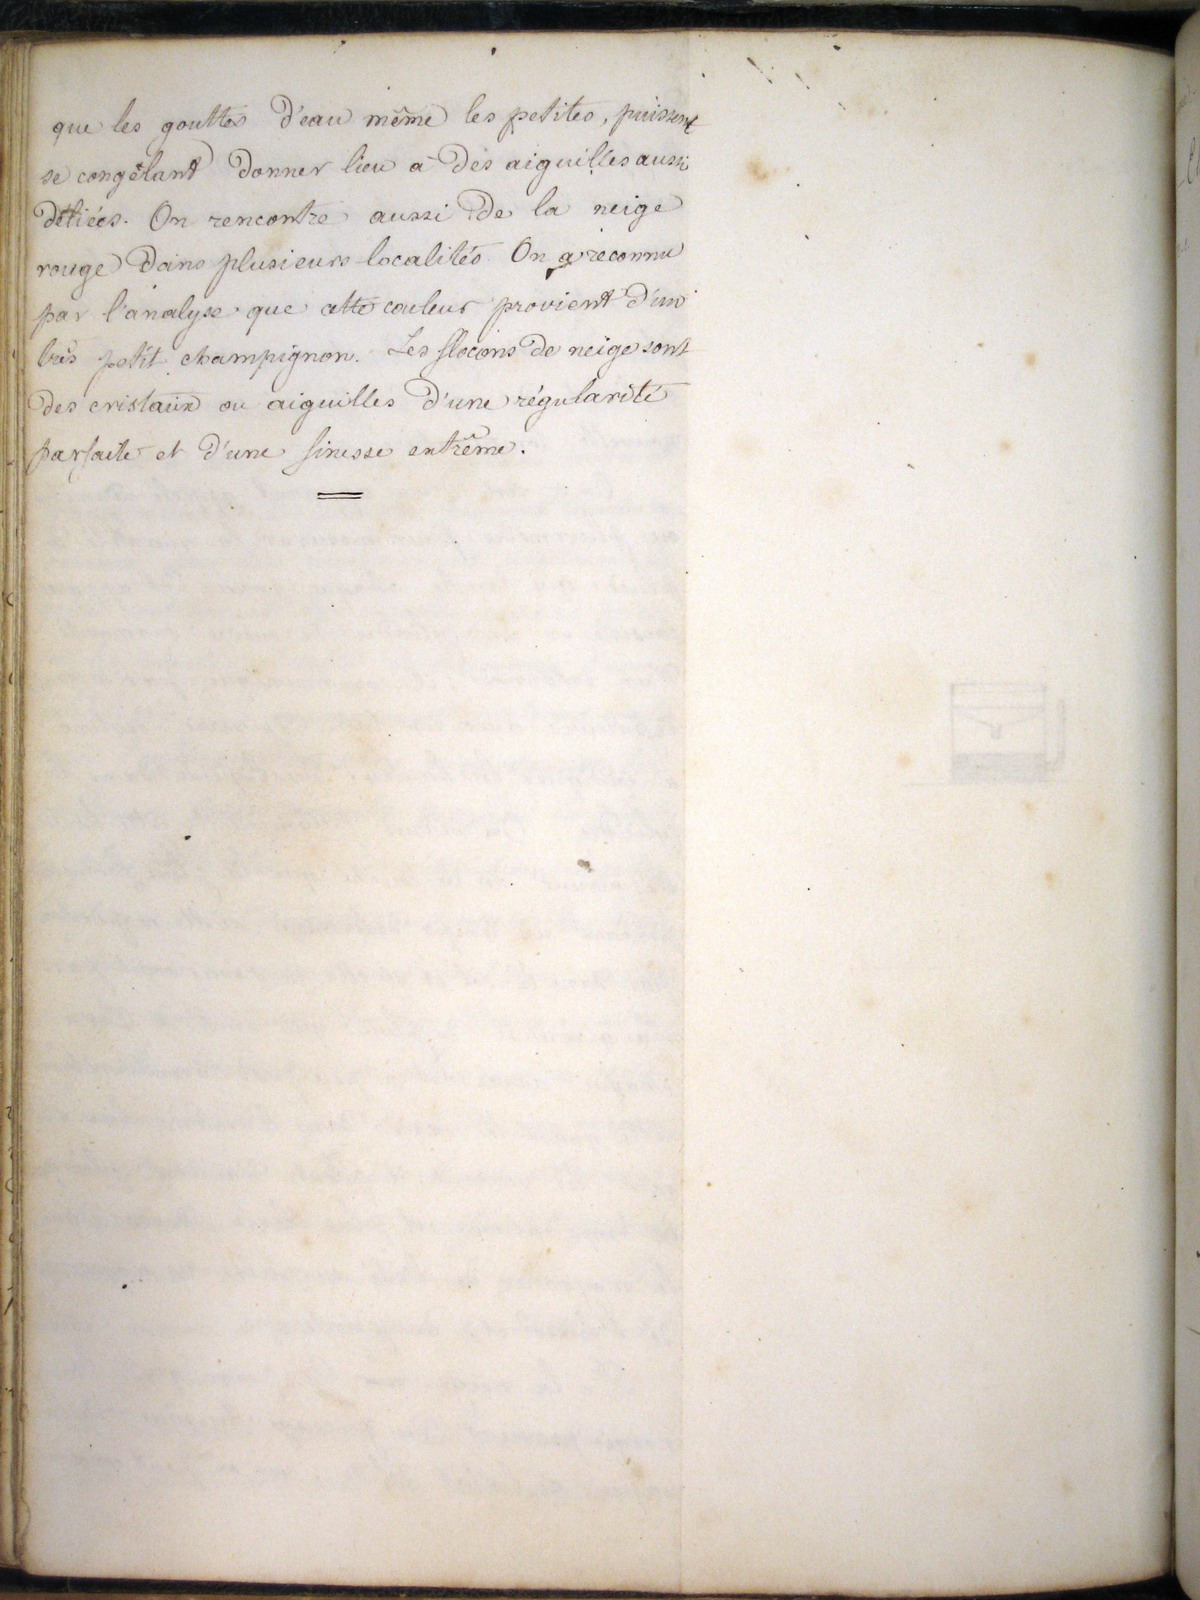 que les gouttes d'eau même les petites, puissent
se congélant donner lieu à des aiguilles aussi
déliées. On rencontre aussi de la neige
rouge dans plusieurs localités On a reconnu
par l'analyse que cette couleur provient d'un
très petit champignon. Les flocons de neige sont
des cristaux ou aiguilles d'une régularité
parfaite et d'une finesse extrême.